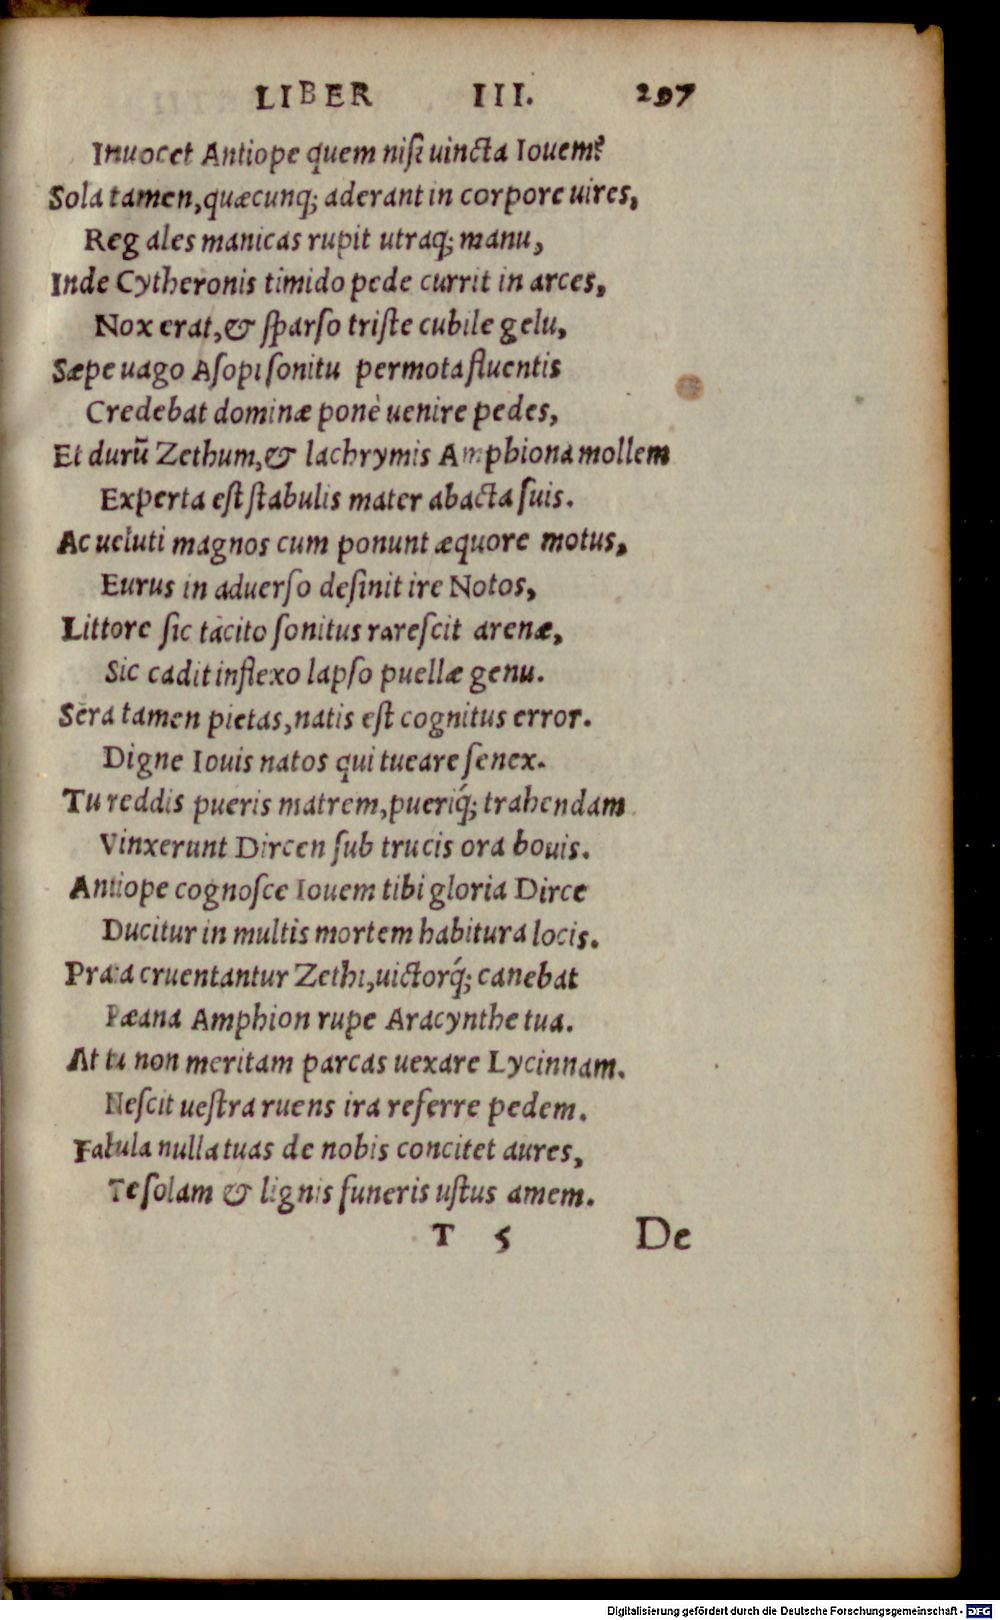 LIBER III. 297
Inuocet Antiope quem nisi uincta Iouem?
Sola tamen, quæcunq; aderant in corpore uires,
Regales manicas rupit utraq; manu,
Inde Cytheronis timido pede currit in arces,
Nox erat, & sparso triste cubile gelu,
Sæpe uago Asopi sonitu permota fluentis
Credebat dominæ ponè uenire pedes,
Et durũ Zethum, & lachrymis Amphiona mollem
Experta est stabulis mater abacta suis.
Ac ueluti magnos cum ponunt æquore motus,
Eurus in aduerso desinit ire Notos,
Littore sic tacito sonitus rarescit arenæ,
Sic cadit inflexo lapso puellæ genu.
Sera tamen pietas, natis est cognitus error.
Digne Iouis natos qui tueare senex.
Tu reddis pueris matrem, pueriq́; trahendam
Vinxerunt Dircen sub trucis ora bouis.
Antiope cognosce Iouem tibi gloria Dirce
Ducitur in multis mortem habitura locis.
Prata cruentantur Zethi, uictorq́; canebat
Pæana Amphion rupe Aracynthe tua.
At tu non meritam parcas uexare Lycinnam.
Nescit uestra ruens ira referre pedem.
Fabula nulla tuas de nobis concitet aures,
Te solam & lignis funeris ustus amem.
T 5 De
Digitalisierung gefördert durch die Deutsche Forschungsgemeinschaft - DFG